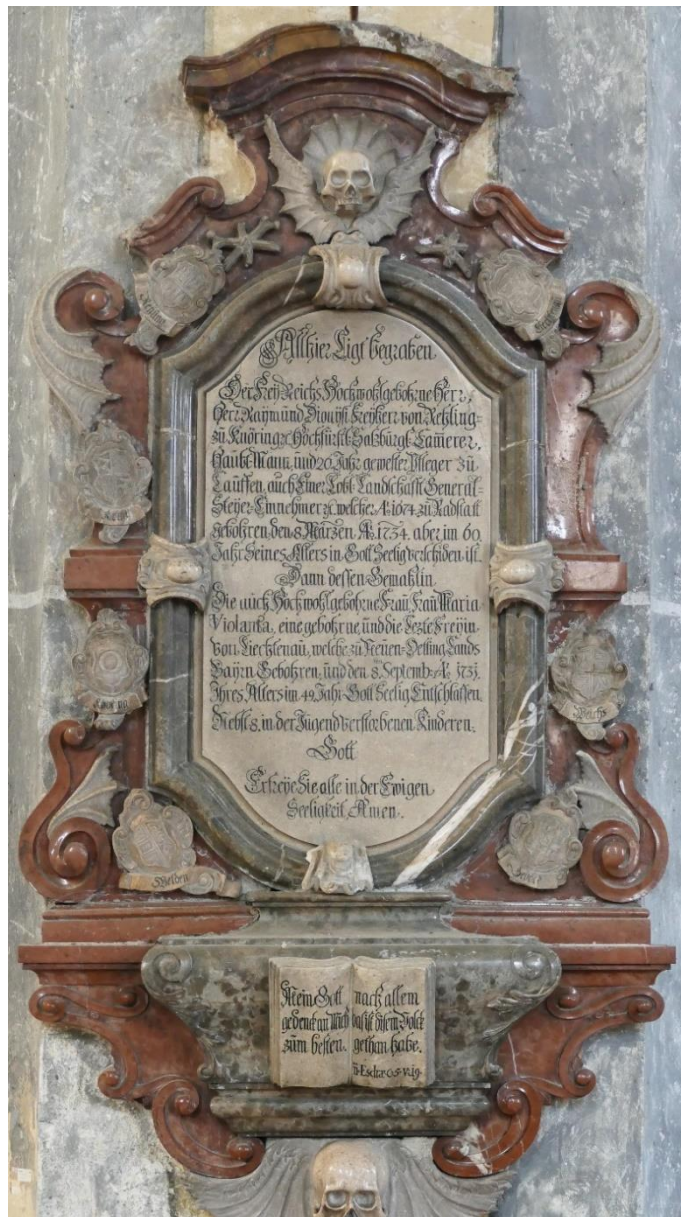 Allhier Ligt begraben
Der Frey Reichs Hochwohlgebohrne Herr,
Herr Raÿmund Dionÿsi Freÿherr von Rehling-
zu Knöring, Hochfürstl. Salzburgl. Cam̄erer,
Haubt-Mann, und 20 Jahr gewester Pfleger zu
Lauffen, auch Einer Lobl. Landschafft General-
Steÿer-Einnehmer welcher Aō. 1674 zu Radstatt
gebohren den 8 Märzen, Aō. 1734. aber im 60.
Jahr Seines Alters in Gott Seelig verschiden ist.
Dann dessen Gemahlin
Die auch Hochwohlgebohrne Frau, Frau Maria
Violanta, eine gebohrne, und die Lezte Freÿin
von Liechtenau, welche zu Neuen-Oetting Lands
Baÿrn Gebohren, und den 8. Septemb: Aō. 1731.
Ihres Alters im 49. Jahr Gott Seelig Entschlaffen,
Nebst 8. in der Jugend verstorbenen Kinderen.
Gott
Erfreÿe Sie alle in der Ewigen
Seeligkeit Amen.
Welden
Mein Gott
gedenck an Mich
zum besten.
nach allem
das ich disem Volck
gethan habe.
Esdræ C. 5. V. 19.